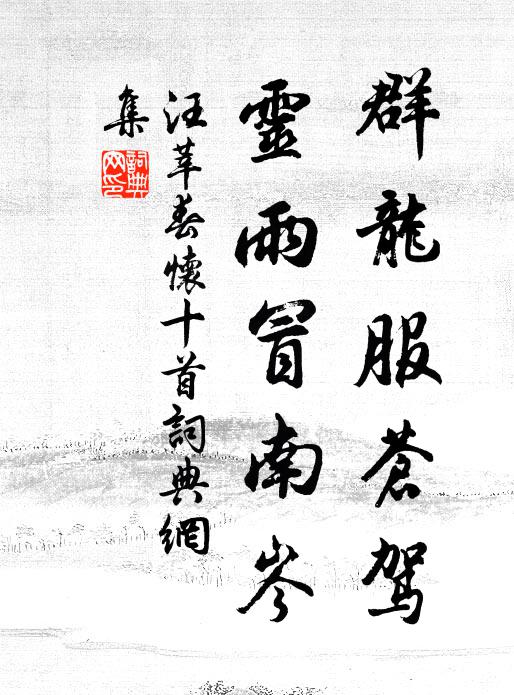 群龍服蒼駕
靈雨冒南岑
汪莘春懷十首詞典網
集
詞典網印